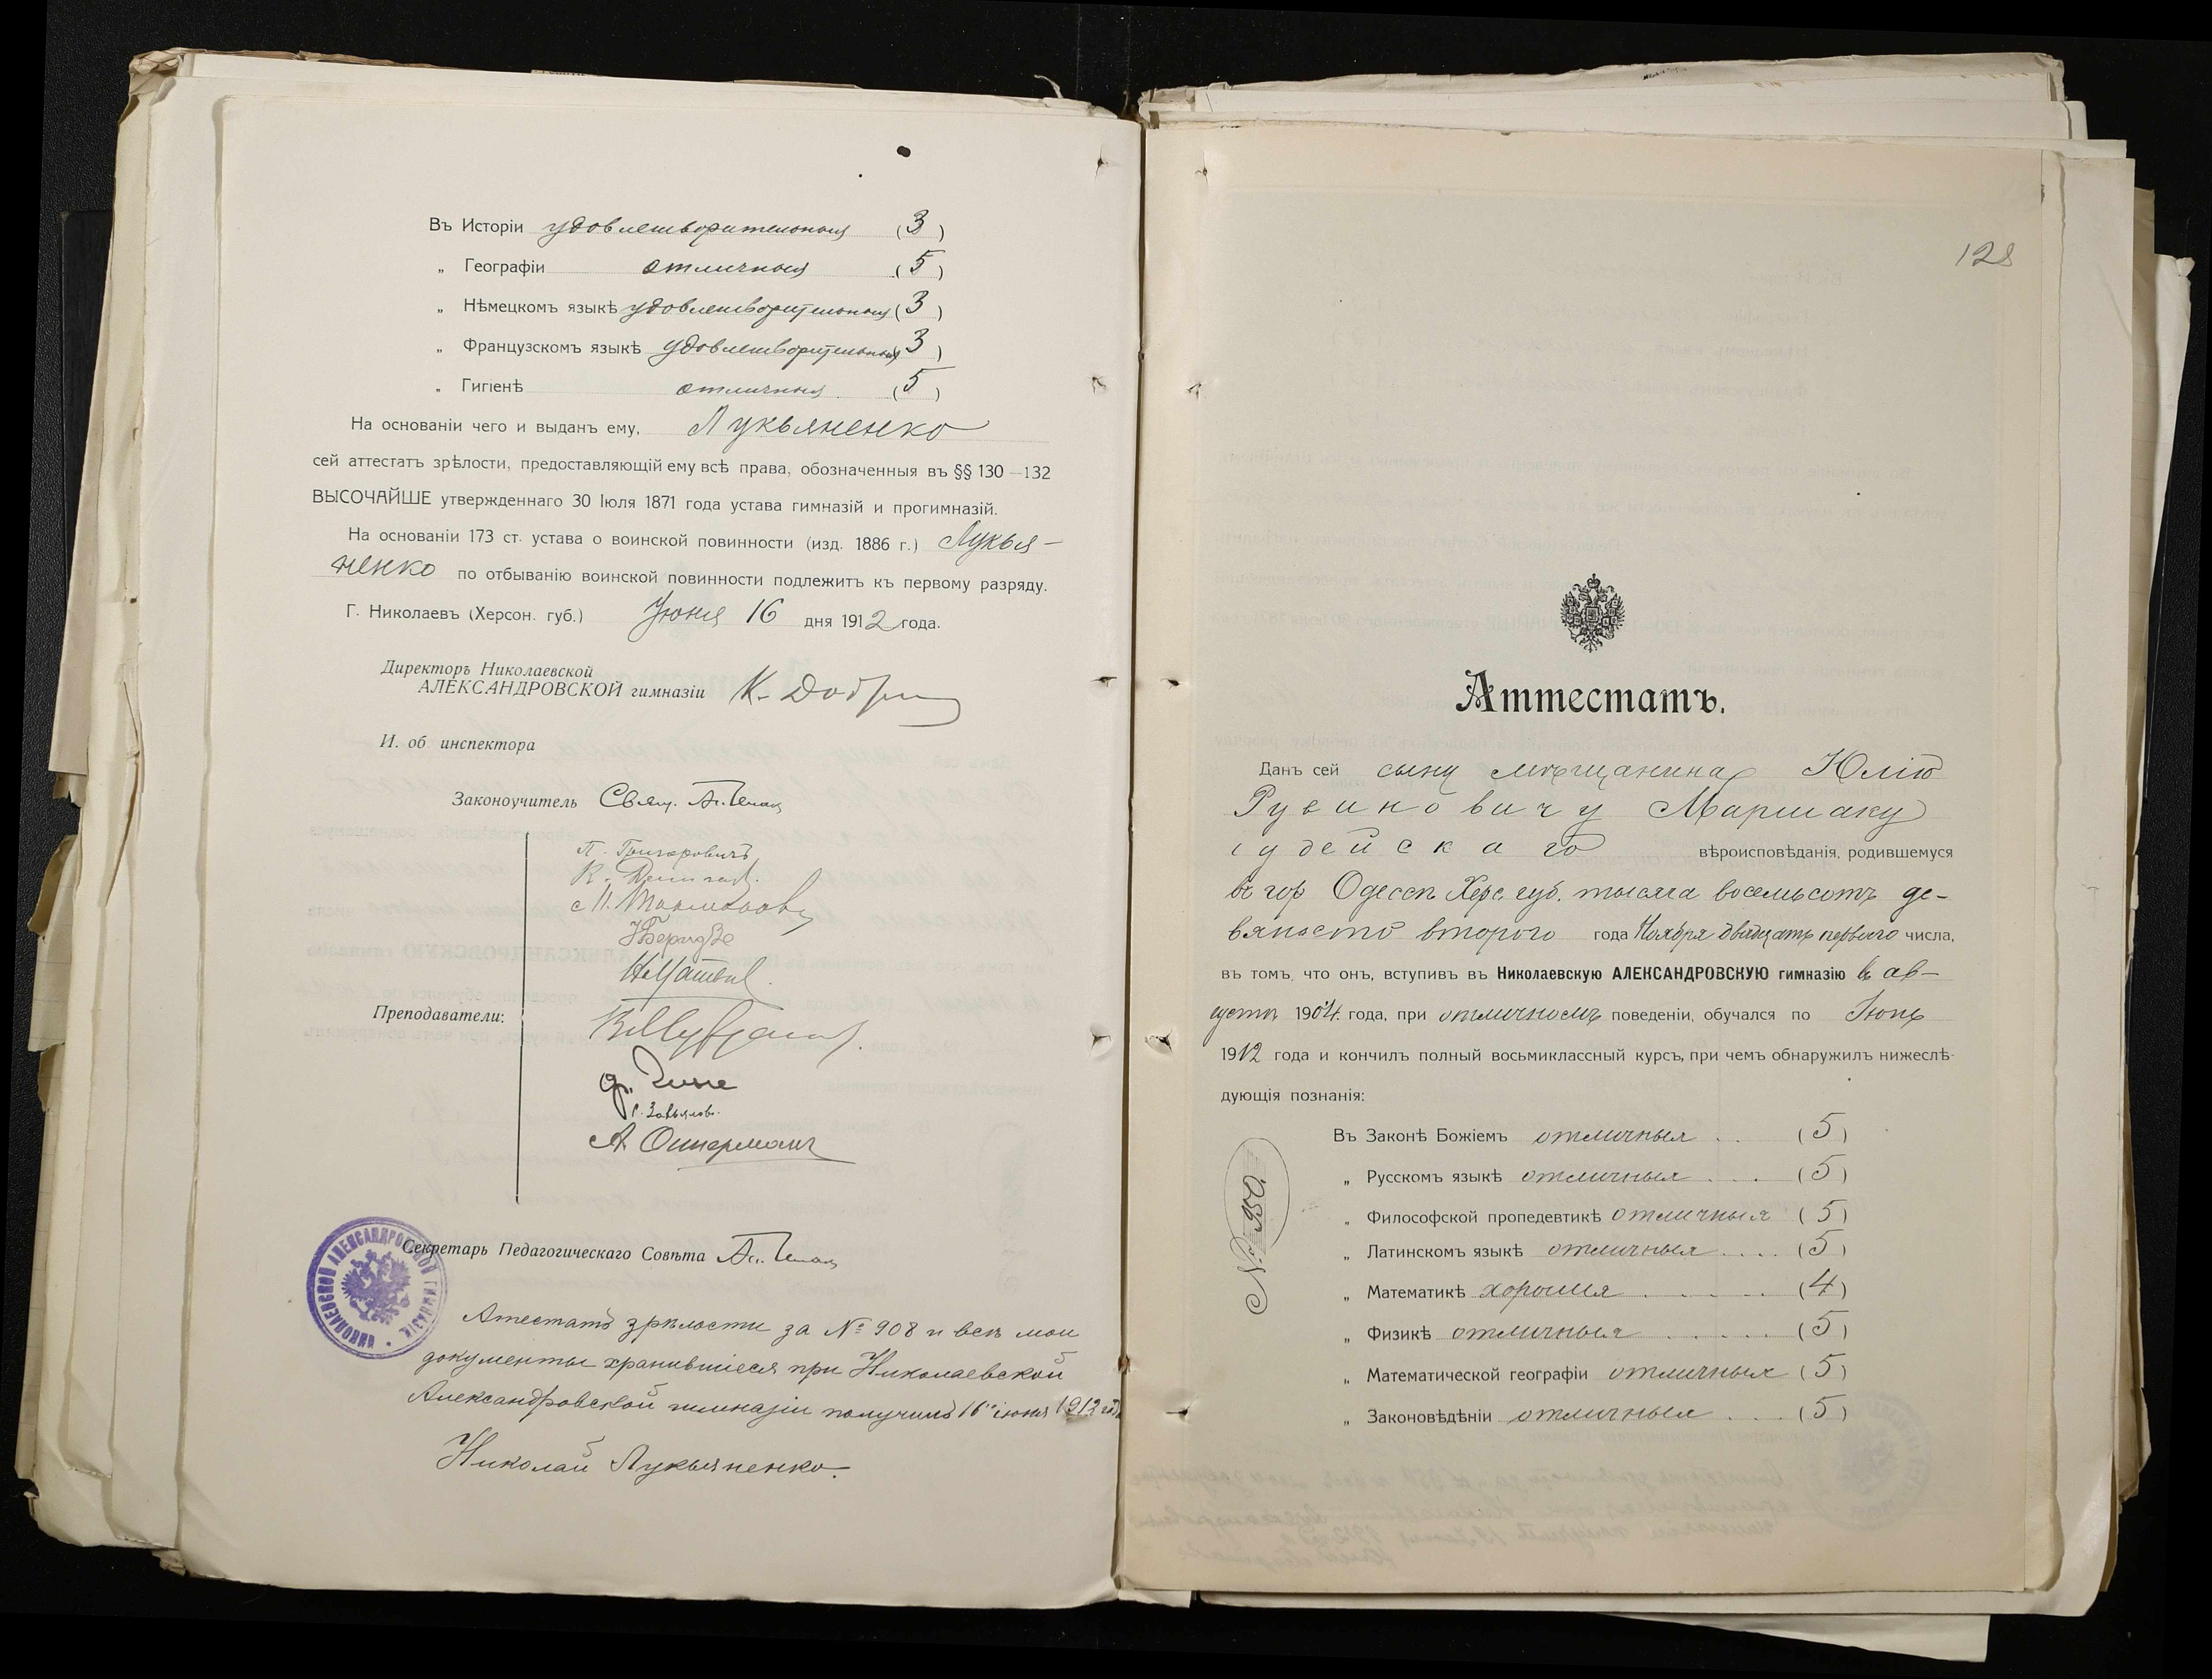 Въ Исторіи удовлетворительныя (3)
„ Географіи отличныя (5)
„ Нѣмецкомъ языкѣ удовлетворительныя (3)
„ Французскомъ языкѣ удовлетворительныя 3)
„ Гигіенѣ отличныя (5)
На основаніи чего и выданъ ему, Лукьяненко
сей аттестатъ зрѣлости, предоставляющій ему всѣ права, обозначенныя въ §§ 130—132
ВЫСОЧАЙШЕ утвержденнаго 30 Іюля 1871 года устава гимназій и прогимназій.
На основаніи 173 ст. устава о воинской повинности (изд. 1886 г.) Лукья-
ненко по отбыванію воинской повинности подлежитъ къ первому разряду.
Г. Николаевъ (Херсон. губ.) Іюня 16 дня 1912 года.
Директоръ Николаевской
АЛЕКСАНДРОВСКОЙ гимназіи К.
И. об инспектора
Законоучитель Свящ. Ал.
П. Гончаровичъ
К.
Н. Беридзе
Преподаватели:
А.
Секретарь Педагогическаго Совѣта Ал.
НИКОЛАЕВСКОЙ АЛЕКСАНДРОВСКОЙ ГИМНАЗІИ
Атестатъ зрѣлости за № 908 и всѣ мои
документы хранившіеся при Николаевской
Александровской гимназіи получилъ 16го іюня 1912 года
Николай Лукьяненко.
128
Аттестатъ.
Данъ сей сыну мѣщанина Юлію
Рувиновичу Маршаку
іудейскаго вѣроисповѣданія, родившемуся
въ гор Одессѣ Херс губ. тысяча восемьсотъ де-
вяносто второго года Ноября двадцать перваго числа,
въ томъ, что онъ, вступивъ въ Николаевскую АЛЕКСАНДРОВСКУЮ гимназію въ ав-
густѣ 1904 года, при отличномъ поведеніи, обучался по Іюнь
1912 года и кончилъ полный восьмиклассный курсъ, при чемъ обнаружилъ нижеслѣ-
дующія познанія:
Въ Законѣ Божіемъ отличныя (5)
„ Русскомъ языкѣ отличныя (5)
„ Философской пропедевтикѣ отличныя (5)
„ Латинскомъ языкѣ отличныя (5)
„ Математикѣ хорошія (4)
„ Физикѣ отличныя (5)
„ Математической географіи отличныя (5)
„ Законовѣдѣніи отличныя (5)
№ 950.